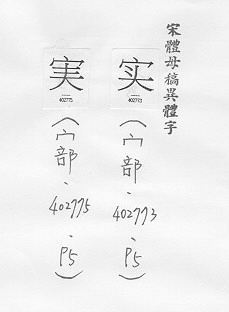 宋體母稿異體字
实
402773
(宀部、402773、P5)
実
402775
(宀部、402775、P5)